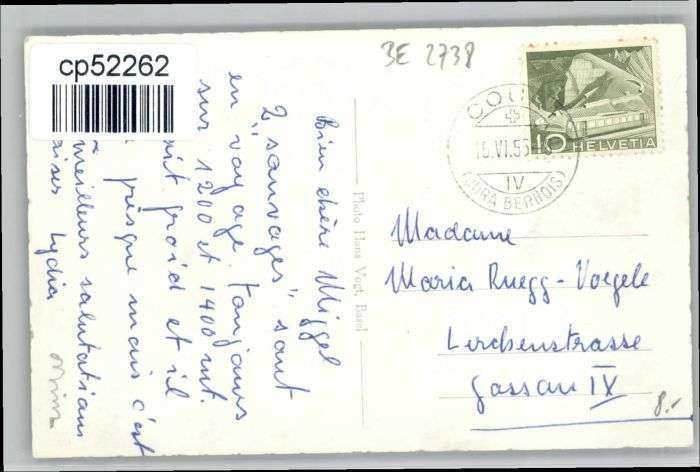 cp52262
BE 2738
COU
15.VI.55
IV
(JURA BERNOIS)
10 HELVETIA
Bien chère Miggel
2 "sauvages" sont
en voyage. Toujours
sur 1200 et 1400 mt.
froid et il
presque mais c'est
meilleurs salutations
Lydia
Photo Hans Vogt, Basel
Madame
Maria Ruegg-Voegele
Lerchenstrasse
Gossau IX
8.-